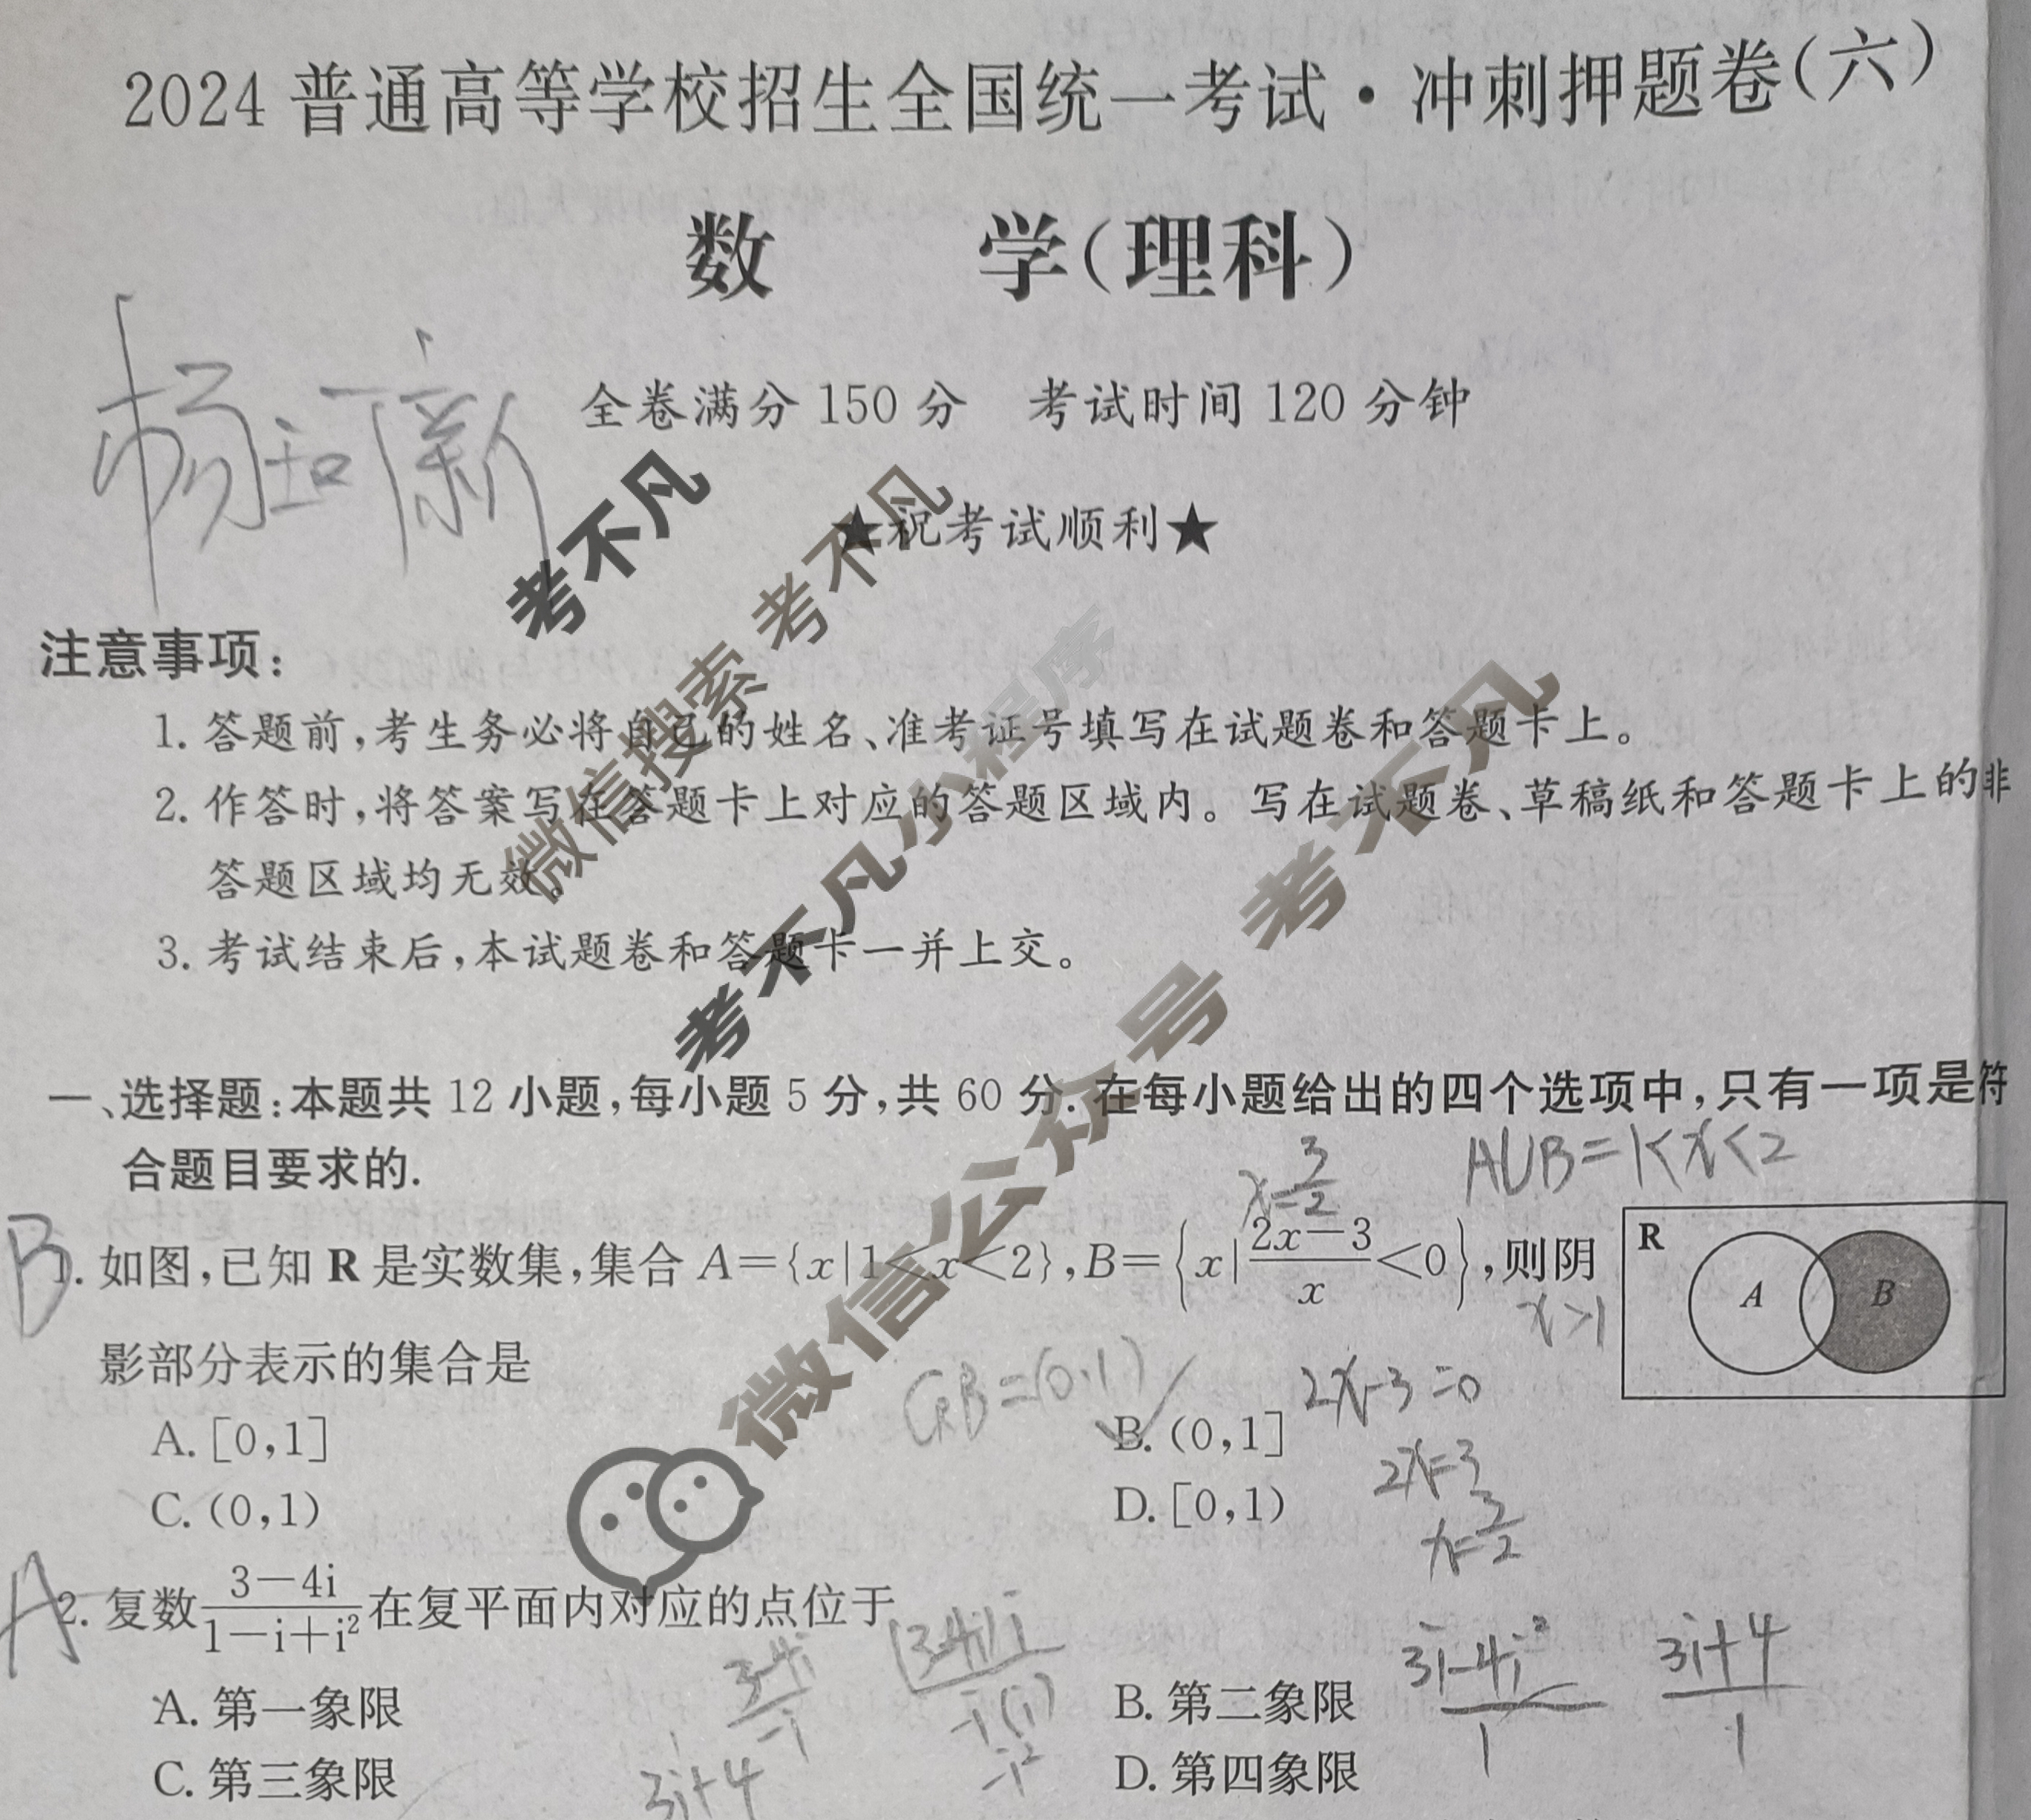 2024 普通高等学校招生全国统一考试·冲刺押题卷(六)
数 学(理科)
全卷满分 150 分 考试时间 120 分钟
★祝考试顺利★
考不凡
微信搜索 考不凡
考不凡小程序
微信公众号 考不凡
注意事项:
1. 答题前,考生务必将自己的姓名、准考证号填写在试题卷和答题卡上。
2. 作答时,将答案写在答题卡上对应的答题区域内。写在试题卷、草稿纸和答题卡上的非
答题区域均无效。
3. 考试结束后,本试题卷和答题卡一并上交。
一、选择题:本题共 12 小题,每小题 5 分,共 60 分. 在每小题给出的四个选项中,只有一项是符
合题目要求的.
x=3/2
AUB=1<x<2
B
1. 如图,已知 R 是实数集,集合 A={x|1<x<2},B={x|(2x-3)/x<0},则阴
R
A
B
x>1
影部分表示的集合是
2x-3=0
A. [0,1]
B. (0,1]
2x=3
C. (0,1)
D. [0,1)
x=3/2
A
2. 复数(3-4i)/(1-i+i²)在复平面内对应的点位于
(3-4i)/-i
(3i-4i²)/1
(3i+4)/1
A. 第一象限
B. 第二象限
3i+4
C. 第三象限
D. 第四象限